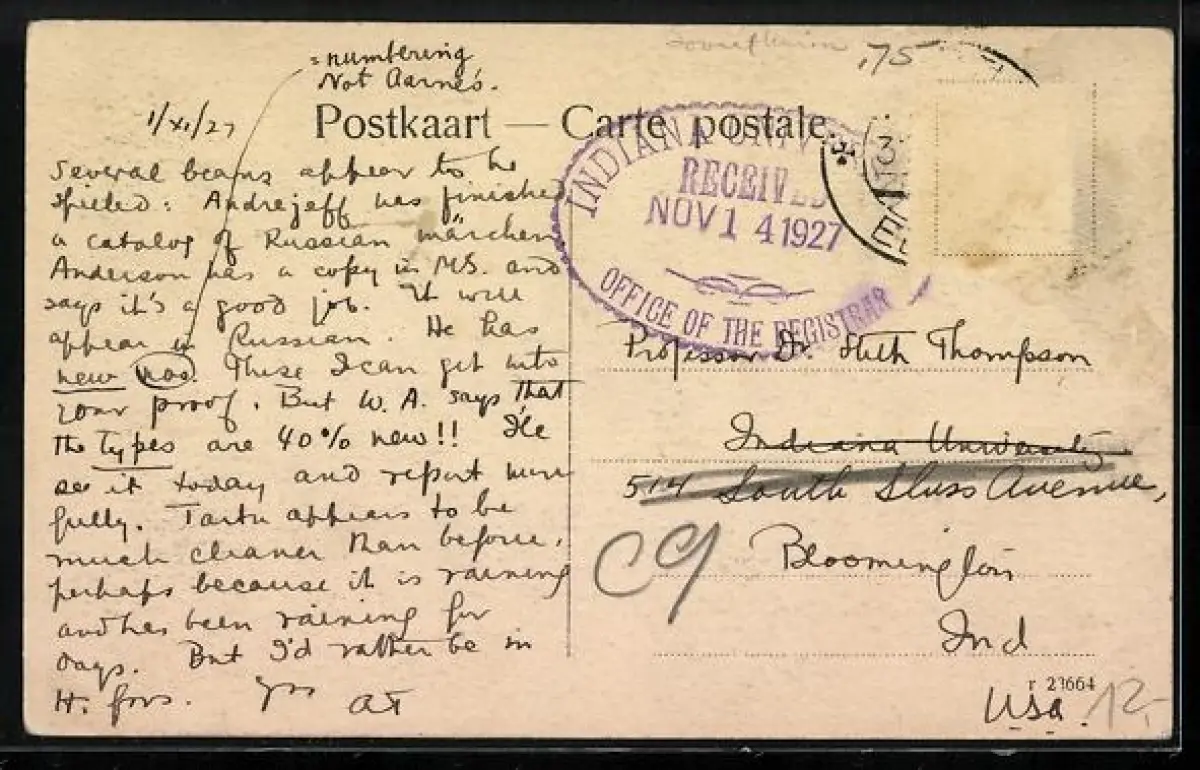 = numbering
Not Aarne's.
.75
1/XI/27
Postkaart — Carte postale.
INDIANA UNIV
RECEIVED
NOV 14 1927
OFFICE OF THE REGISTRAR
Several beans appear to be
spilled: Andrejeff has finished
a catalog of Russian märchen
Anderson has a copy in MS. and
says it's a good job. It will
appear in Russian. He has
new nos. These I can get into
your proof. But W. A. says that
the types are 40% new!! I'le
see it today and report more
fully. Tartu appears to be
much cleaner than before,
perhaps because it is raining
and has been raining for
days. But I'd rather be in
H. fors. Yrs AT
Professor Dr. Stith Thompson
Indiana University
514 South Sluss Avenue,
Bloomington
Ind
USA.
r 23664
12.-